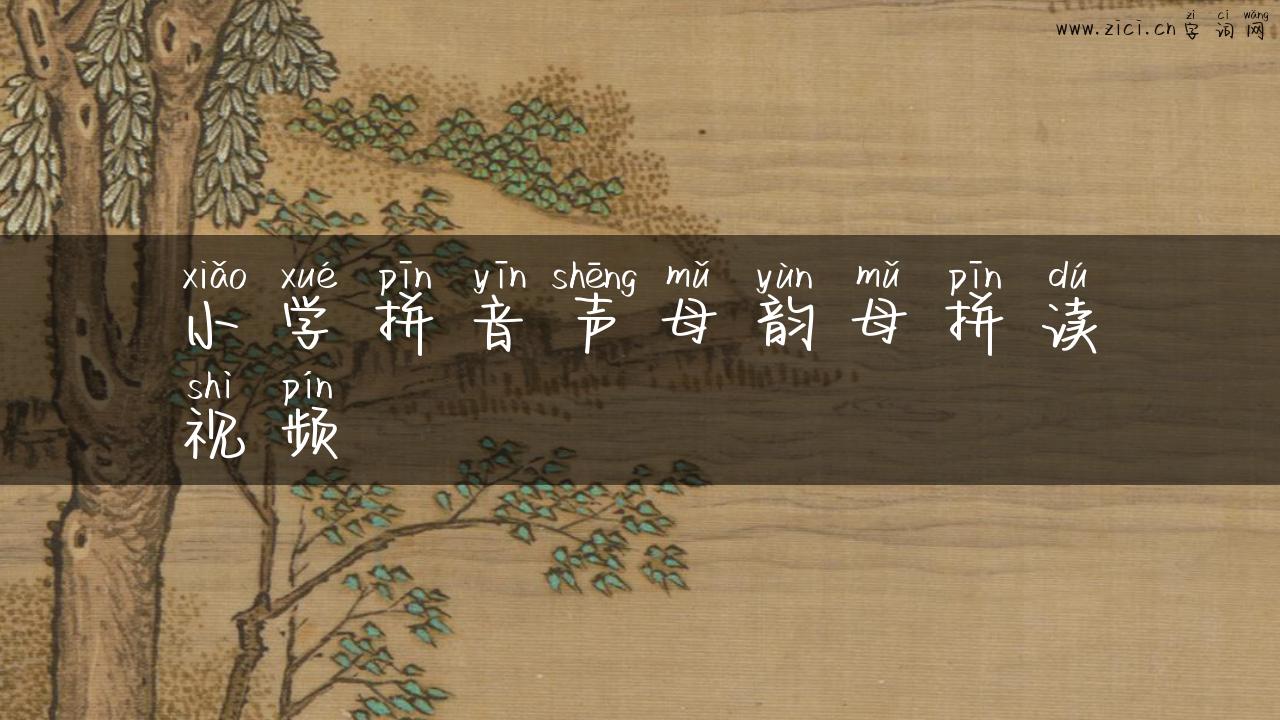 zì cí wǎng
www.zici.cn 字词网
xiǎo xué pīn yīn shēng mǔ yùn mǔ pīn dú
小学拼音声母韵母拼读
shì pín
视频